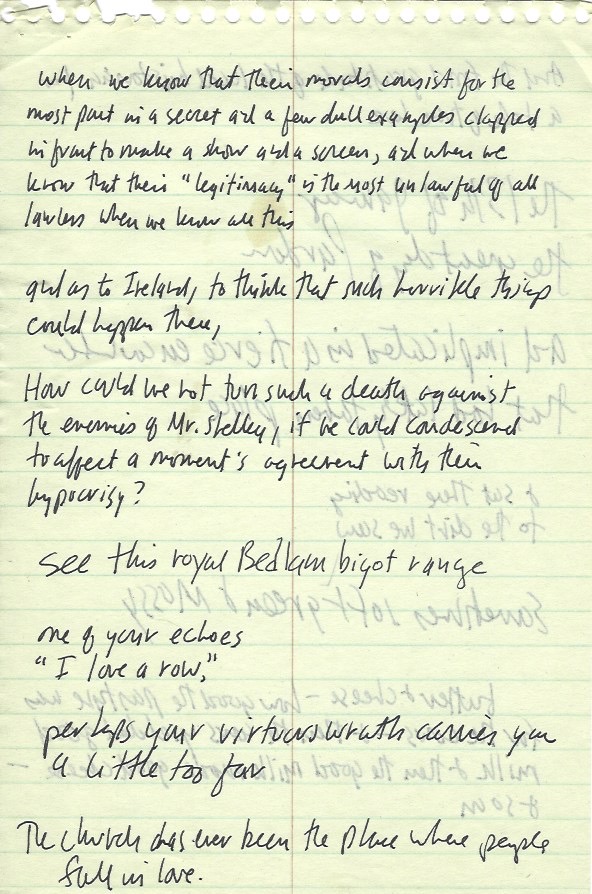 when we know that their morals consist for the
most part in a secret and a few dull examples clapped
in front to make a show and a screen, and when we
know that their "legitimacy" is the most unlawful of all
lawless when we know all this
and as to Ireland, to think that such horrible things
could happen there,
How could we not turn such a death against
the enemies of Mr. Shelley, if we could condescend
to affect a moment's agreement with their
hypocrisy?
see this royal Bedlam bigot range
one of your echoes
"I love a row,"
perhaps your virtuous wrath carries you
a little too far
The church has ever been the place where people
fall in love.